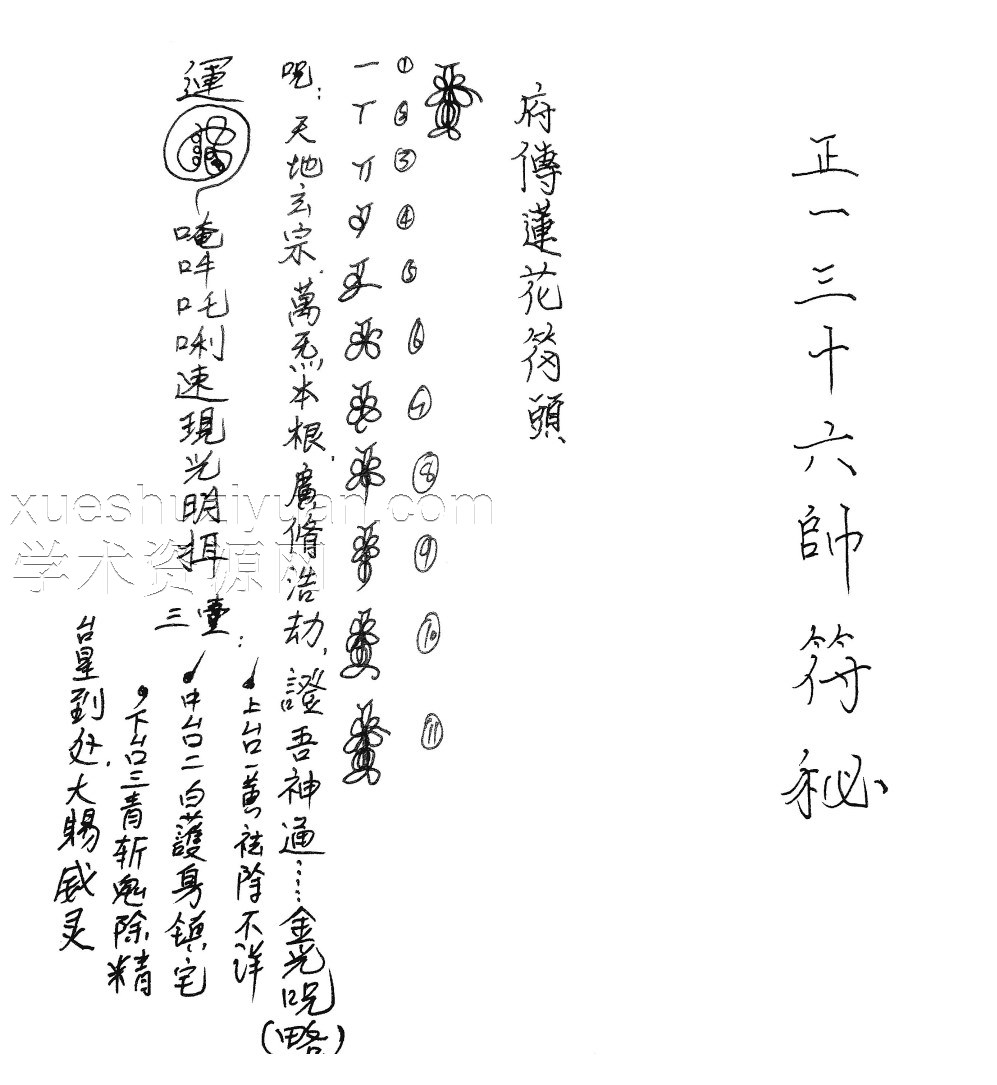 正一三十六帥符秘
府傳蓮花符頭
① ② ③ ④ ⑤ ⑥ ⑦ ⑧ ⑨ ⑩ ⑪
呪：天地玄宗，萬炁本根，廣脩浩劫，證吾神通……金光呪(略)
運
唵吽吒唎速現光明
三臺：
上台一黄祛除不洋
中台二白護身镇宅
下台三青斩鬼除精
台星到处，大赐威灵
xueshuziyuan.com
学术资源网